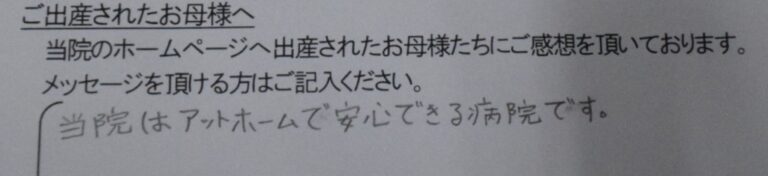 ご出産されたお母様へ
当院のホームページへ出産されたお母様たちにご感想を頂いております。
メッセージを頂ける方はご記入ください。
当院はアットホームで安心できる病院です。